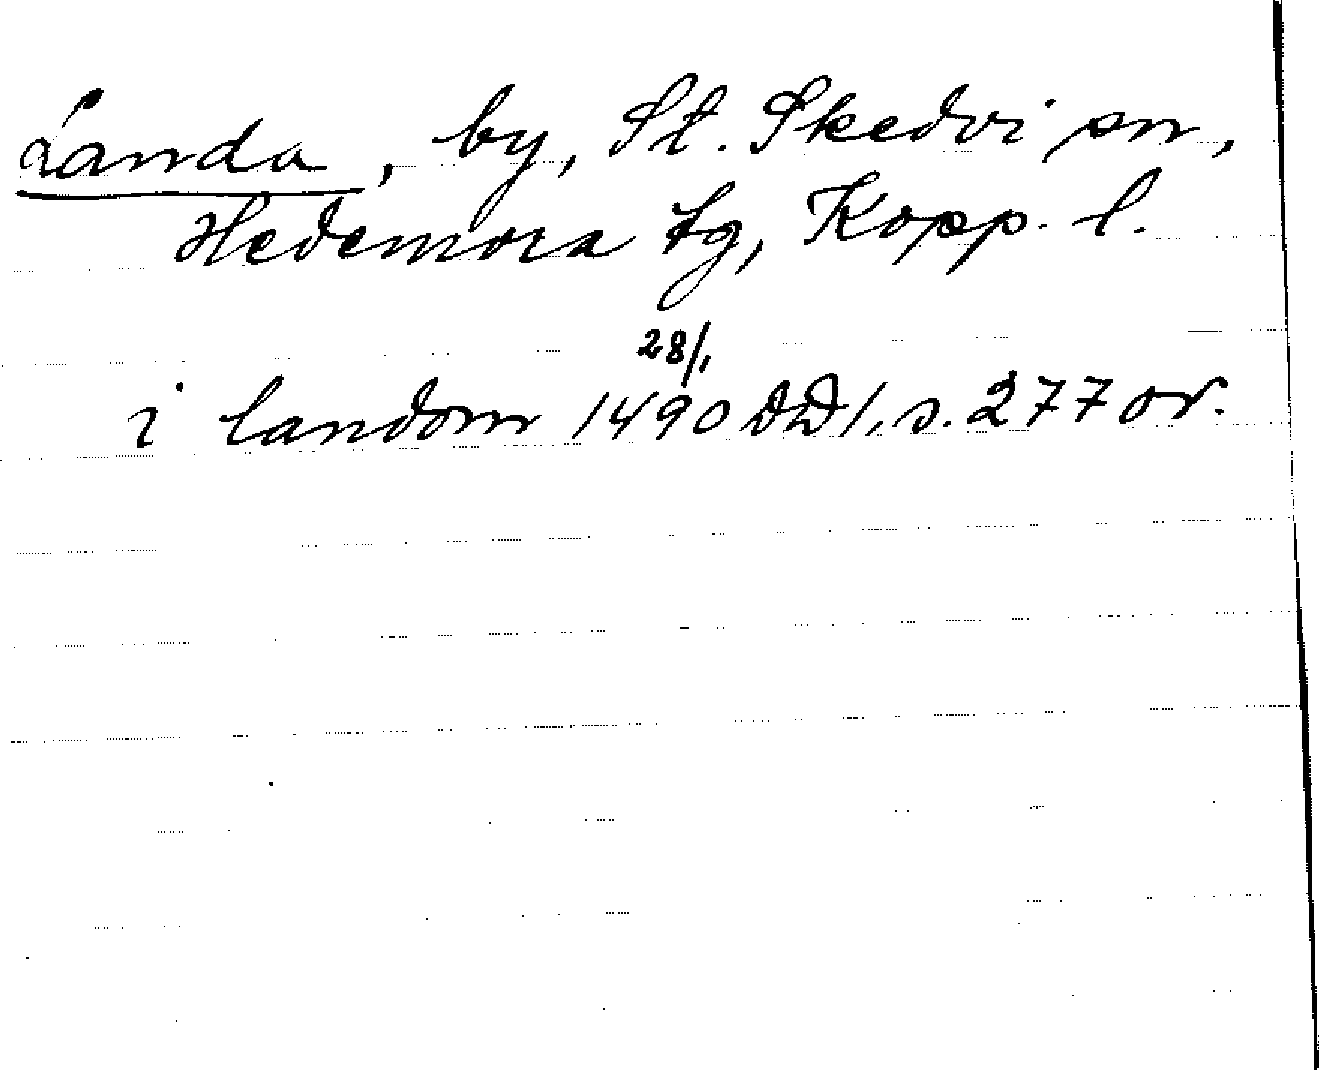 Landa, by, St. Skedvi sn,
Hedemora tg, Kopp. l.
28/1
i landom 1490 DD 1, s. 277 or.